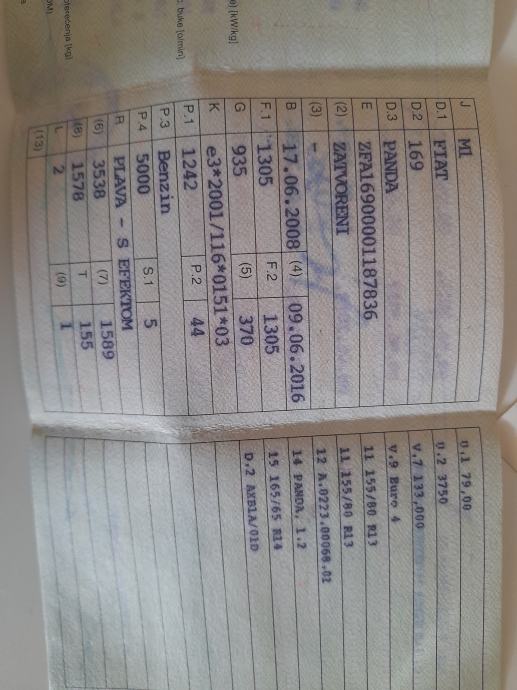 e) [kW/kg]
c. buke [o/min]
J M1
D.1 FIAT
D.2 169
D.3 PANDA
E ZFA16900001187836
(2) ZATVORENI
(3) -
B 17.06.2008 (4) 09.06.2016
F.1 1305 F.2 1305
G 935 (5) 370
K e3*2001/116*0151*03
P.1 1242 P.2 44
P.3 Benzin
P.4 5000 S.1 5
R PLAVA - S EFEKTOM
(6) 3538 (7) 1589
(8) 1578 T 155
L 2 (9) 1
(13)
U.1 79,00
U.2 3750
V.7 133,000
V.9 Euro 4
11 155/80 R13
11 155/80 R13
12 A.0223.00068.01
14 PANDA, 1.2
15 165/65 R14
D.2 AXB1A/01D